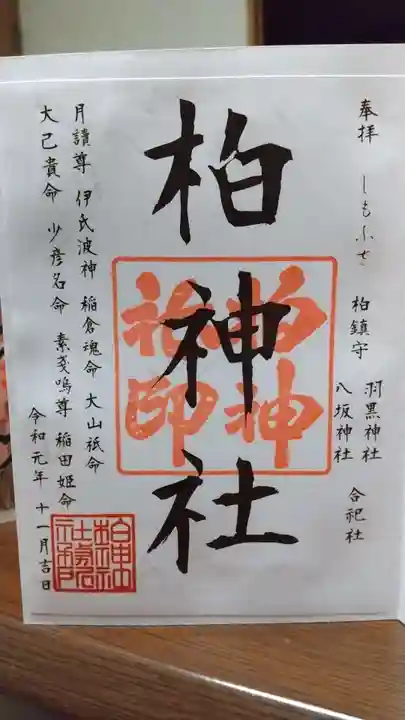 奉拝 しもふさ 柏鎮守 羽黒神社 合祀社
八坂神社
柏神社
柏神
社印
月讀尊 伊氏波神 稲倉魂命 大山祇命
大己貴命 少彦名命 素戔嗚尊 稲田姫命
令和元年 十一月吉日